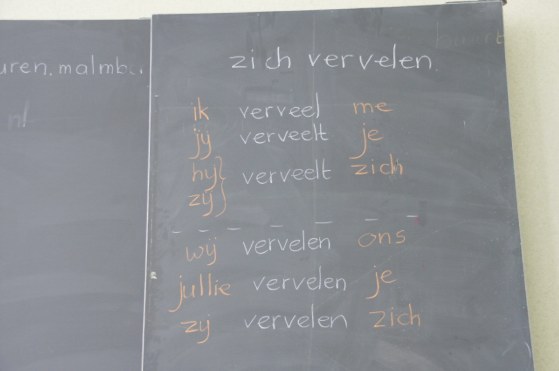 zich vervelen
ik verveel me
jij verveelt je
hij verveelt zich
zij
wij vervelen ons
jullie vervelen je
zij vervelen zich